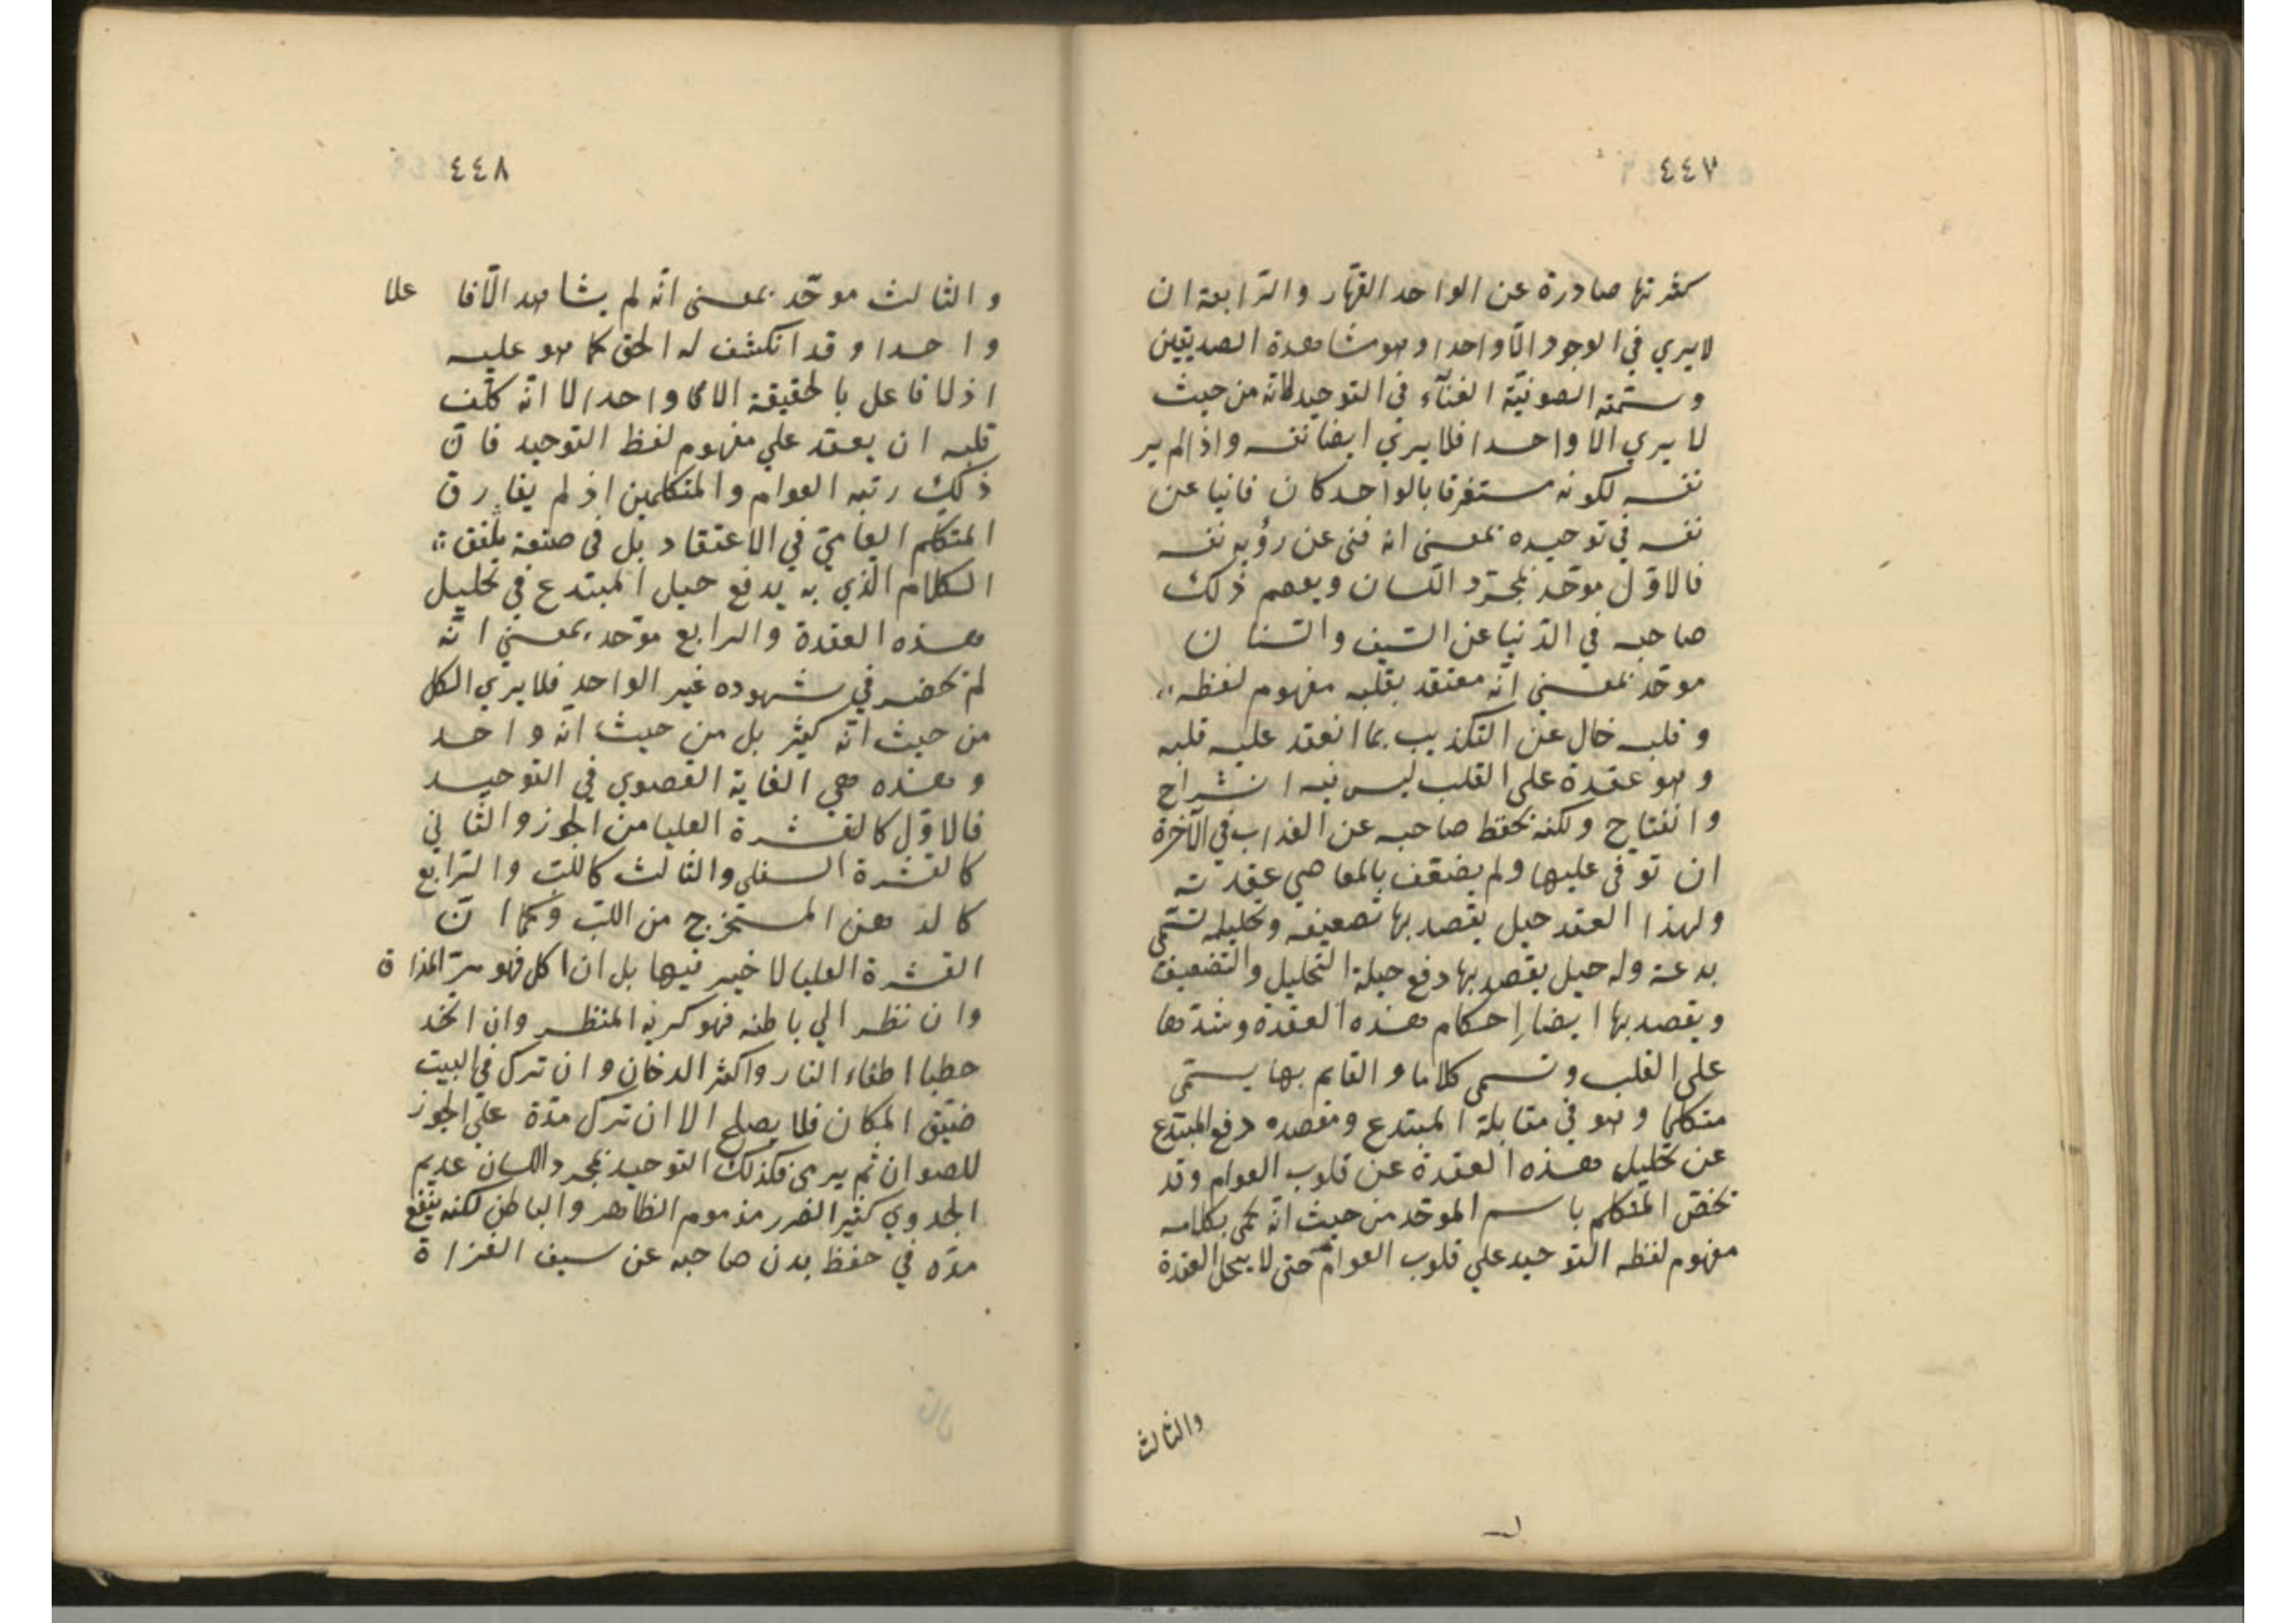 ٤٤٧
كثرتها صادرة عن الواحد القهّار والرّابعة ان
لا يري في الوجود الّا واحدا وهو مشاهدة الصديقين
وستمّه الصوفيّة الفنآء في التوحيد لانّه من حيث
لا يري الا واحدا فلا يرىٰ ايضا نفسه واذا لم ير
نفسه لكونه مستغرقا بالواحد كان فانيا عن
نفسه في توحيده بمعنى انه فنى عن رؤية نفسه
فالاوّل موحّد بمجرّد اللّسان ويعصم ذلك
صاحبه في الدّنيا عن السّيف والسّنان
موحّد بمعنى انّه معتقد بقلبه مفهوم لفظه
وقلبه خال عن التكذيب بما انعقد عليه قلبه
وهو عقدة على القلب ليس فيه انشراح
وانفتاح ولكنه يحفظ صاحبه عن العذاب في الآخرة
ان توفّى عليها ولم يضعّف بالمعاصي عقدته
ولهذا العقد حيل يقصد بها تضعيفه وتحليله تسمّى
بدعة وله حيل يقصد بها دفع حيلة التحليل والتضعيف
ويقصد بها ايضا احكام هذه العقدة وشدّها
على القلب وتسمى كلاما والقايم بها يسمّى
متكلما وهو في مقابلة المبتدع ومقصده دفع المبتدع
عن تحليل هذه العقدة عن قلوب العوام وقد
يخصّ المتكلم باسم الموحّد من حيث انّه يحمى بكلامه
مفهوم لفظه التوحيد علي قلوب العوام حتى لا ينحل العقدة
والثالث
٤٤٨
والثالث موحّد بمعنى انّه لم يشاهد الّا فا علا
واحدا وقد انكشف له الحق كما هو عليه
اذ لا فاعل بالحقيقة الا واحدا لا انّه كلّف
قلبه ان يعقد علي مفهوم لفظ التوحيد فانّ
ذلك رتبه العوام والمتكلمين اذ لم يفارق
المتكلم العاميّ في الاعتقاد بل في صنعة تلفيق
الكلام الّذي به يدفع حيل المبتدع في تحليل
هذه العقدة والرابع موحّد بمعنى انّه
لم يحضر في شهوده غير الواحد فلا يري الكل
من حيث انّه كثير بل من حيث انّه واحد
وهذه هي الغاية القصوي في التوحيد
فالاوّل كالقشرة العليا من الجوز والثّاني
كالقشرة السفلي والثالث كاللّب والرّابع
كالدهن المستخرج من اللبّ وكما انّ
القشرة العليا لا خير فيها بل ان اكل فهو مرّ المذاق
وان نظر الي باطنه فهو كريه المنظر وان اتخذ
حطبا اطفاء النار واكثر الدخان وان ترك في البيت
ضيّق المكان فلا يصلح الا ان ترك مدّة علي الجوز
للصوان ثم يرمىٰ فكذلك التوحيد بمجرد اللسان عديم
الجدوي كثير الضرر مذموم الظاهر والباطن لكنه ينفع
مدّه في حفظ بدن صاحبه عن سيف الغزاة